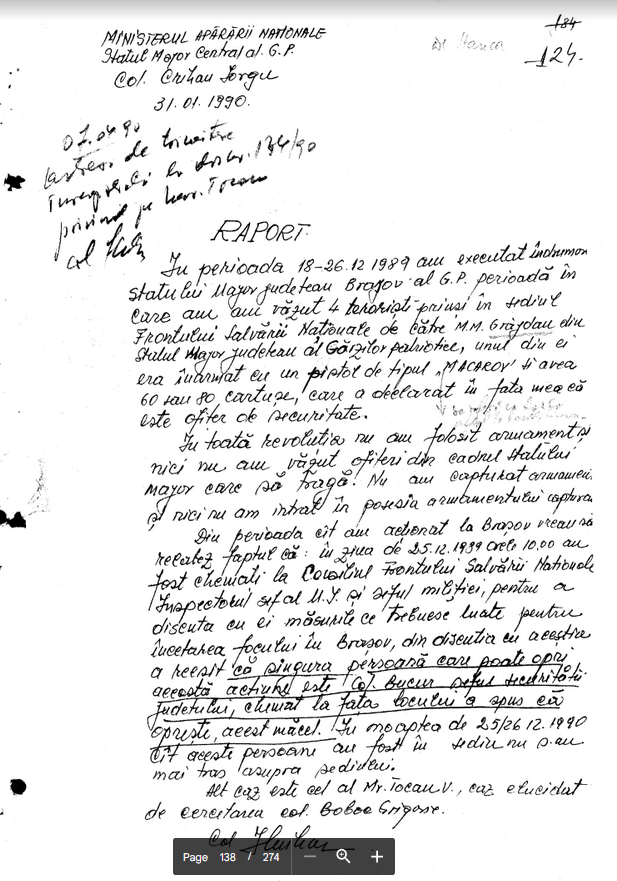 184
124.
MINISTERUL APĂRĂRII NAȚIONALE
Statul Major Central al G.P.
Col. Crihan Iorgu
31.01.1990.
07.04 90
de trimitere
134/90
privind pe
col
RAPORT
În perioada 18-26.12 1989 am executat îndrumar
statului Major județean Brașov al G.P. perioadă în
care am am văzut 4 teroriști prinși în sediul
Frontului Salvării Naționale de către M.M. Grăjdan din
Statul Major județean al Gărzilor patriotice, unul din ei
era înarmat cu un pistol de tipul "MACAROV" și avea
60 sau 80 cartușe, care a declarat în fața mea că
este ofițer de securitate.
În toată revoluția nu am folosit armament și
nici nu am văzut ofițeri din cadrul statului
Major care să tragă. Nu am capturat armamen
și nici nu am intrat în posesia armamentului captura
Din perioada cît am acționat la Brașov vreau să
relatez faptul că: în ziua de 25.12.1989 orele 10,00 au
fost chemați la Consiliul Frontului Salvării Naționale
Inspectorul șef al M.I. și șeful miliției, pentru a
discuta cu ei măsurile ce trebuesc luate pentru
încetarea focului în Brașov, din discuția cu aceștia
a reeșit că singura persoană care poate opri
această acțiune este Col. Bucur șeful securității
județului, chemat la fața locului a spus că
oprește, acest măcel. În noaptea de 25/26 12.1990
cît aceste persoane au fost în sediu nu s-au
mai tras asupra sediului.
Alt caz este cel al Mr. Țocan V., caz elucidat
de cercetarea col. Boboc Grigore.
Col
Page 138 / 274